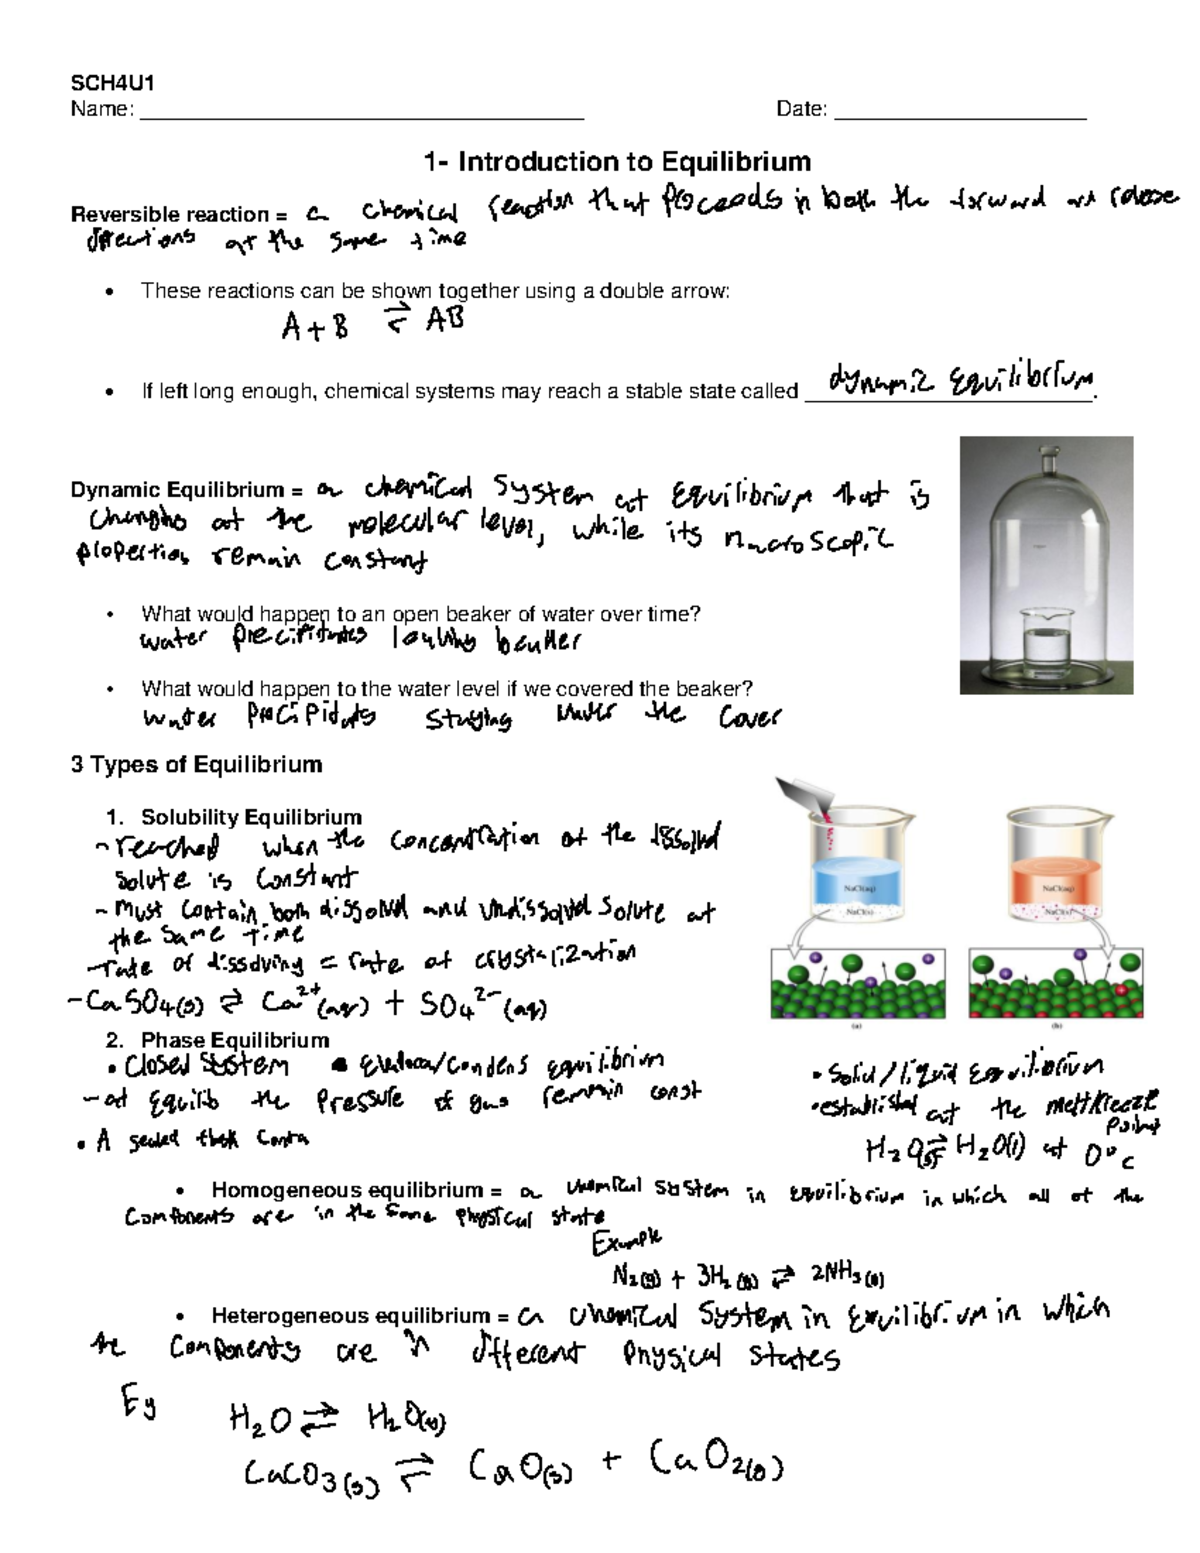 SCH4U1
Name: Date:
1- Introduction to Equilibrium
Reversible reaction = a chemical reaction that proceeds in both the forward
directions at the same time
• These reactions can be shown together using a double arrow:
A + B ⇌ AB
• If left long enough, chemical systems may reach a stable state called dynamic equilibrium.
Dynamic Equilibrium = a chemical system at equilibrium that is
at the molecular level, while its macroscopic
properties remain constant
• What would happen to an open beaker of water over time?
water precipitates
• What would happen to the water level if we covered the beaker?
water staying under the cover
3 Types of Equilibrium
1. Solubility Equilibrium
- reached when the concentration of the
solute is constant
- Must contain both dissolved and undissolved solute at
the same time
- rate of dissolving = rate of
- CaSO4(s) ⇌ Ca2+(aq) + SO42-(aq)
NaCl(aq)
NaCl(s)
NaCl(aq)
NaCl(s)
(a)
(b)
2. Phase Equilibrium
• Closed system • equilibrium
- at Equilib the pressure of gas remain const
• A sealed
• Solid/liquid Equilibrium
• established at the
point
H2O ⇌ H2O(l) at 0°C
• Homogeneous equilibrium = a chemical system in equilibrium in which all of the
components are in the same physical state
Example
N2(g) + 3H2(g) ⇌ 2NH3(g)
• Heterogeneous equilibrium = a chemical system in equilibrium in which
the components are in different physical states
Eg
H2O ⇌
CaCO3(s) ⇌ CaO(s) + CaO2(g)